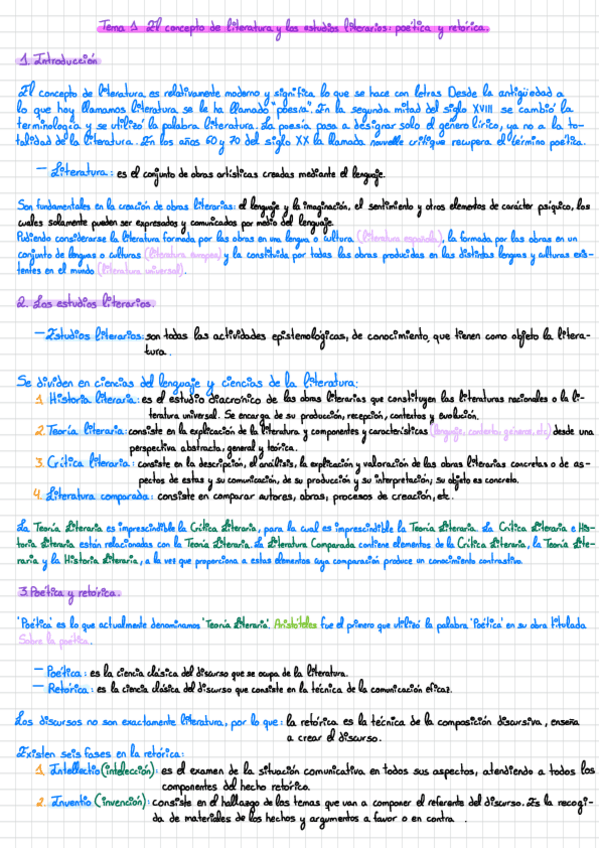 Tema 1 El concepto de literatura y los estudios literarios: poética y retórica.
1. Introducción
El concepto de literatura es relativamente moderno y significa lo que se hace con letras. Desde la antigüedad a
lo que hoy llamamos literatura se le ha llamado "poesía". En la segunda mitad del siglo XVIII se cambió la
terminología y se utilizó la palabra literatura. La poesía pasa a designar solo el género lírico, ya no a la to-
talidad de la literatura. En los años 60 y 70 del siglo XX la llamada nouvelle critique recupera el término poética.
- Literatura: es el conjunto de obras artísticas creadas mediante el lenguaje.
Son fundamentales en la creación de obras literarias: el lenguaje y la imaginación, el sentimiento y otros elementos de carácter psíquico, los
cuales solamente pueden ser expresados y comunicados por medio del lenguaje.
Pudiendo considerarse la literatura formada por las obras en una lengua o cultura (literatura española), la formada por las obras en un
conjunto de lenguas o culturas (literatura europea) y la constituida por todas las obras producidas en las distintas lenguas y culturas exis-
tentes en el mundo (literatura universal).
2. Los estudios literarios.
- Estudios literarios: son todas las actividades epistemológicas, de conocimiento, que tienen como objeto la litera-
tura.
Se dividen en ciencias del lenguaje y ciencias de la literatura:
1. Historia literaria: es el estudio diacrónico de las obras literarias que constituyen las literaturas nacionales o la li-
teratura universal. Se encarga de su producción, recepción, contextos y evolución.
2. Teoría literaria: consiste en la explicación de la literatura y componentes y características (lenguaje, contexto, géneros, etc) desde una
perspectiva abstracta, general y teórica.
3. Crítica literaria: consiste en la descripción, el análisis, la explicación y valoración de las obras literarias concretas o de as-
pectos de estas y su comunicación, de su producción y su interpretación; su objeto es concreto.
4. Literatura comparada: consiste en comparar autores, obras, procesos de creación, etc.
La Teoría Literaria es imprescindible la Crítica Literaria, para la cual es imprescindible la Teoría Literaria. La Crítica Literaria e His-
toria Literaria están relacionadas con la Teoría Literaria. La Literatura Comparada contiene elementos de la Crítica Literaria, la Teoría Lite-
raria y la Historia Literaria, a la vez que proporciona a estas elementos cuya comparación produce un conocimiento contrastivo.
3. Poética y retórica.
'Poética' es lo que actualmente denominamos 'Teoría Literaria'. Aristóteles fue el primero que utilizó la palabra 'Poética' en su obra titulada
Sobre la poética.
- Poética: es la ciencia clásica del discurso que se ocupa de la literatura.
- Retórica: es la ciencia clásica del discurso que consiste en la técnica de la comunicación eficaz.
Los discursos no son exactamente literatura, por lo que: la retórica es la técnica de la composición discursiva, enseña
a crear el discurso.
Existen seis fases en la retórica:
1. Intellectio (intelección): es el examen de la situación comunicativa en todos sus aspectos, atendiendo a todos los
componentes del hecho retórico.
2. Inventio (invención): consiste en el hallazgo de los temas que van a componer el referente del discurso. Es la recogi-
da de materiales de los hechos y argumentos a favor o en contra.